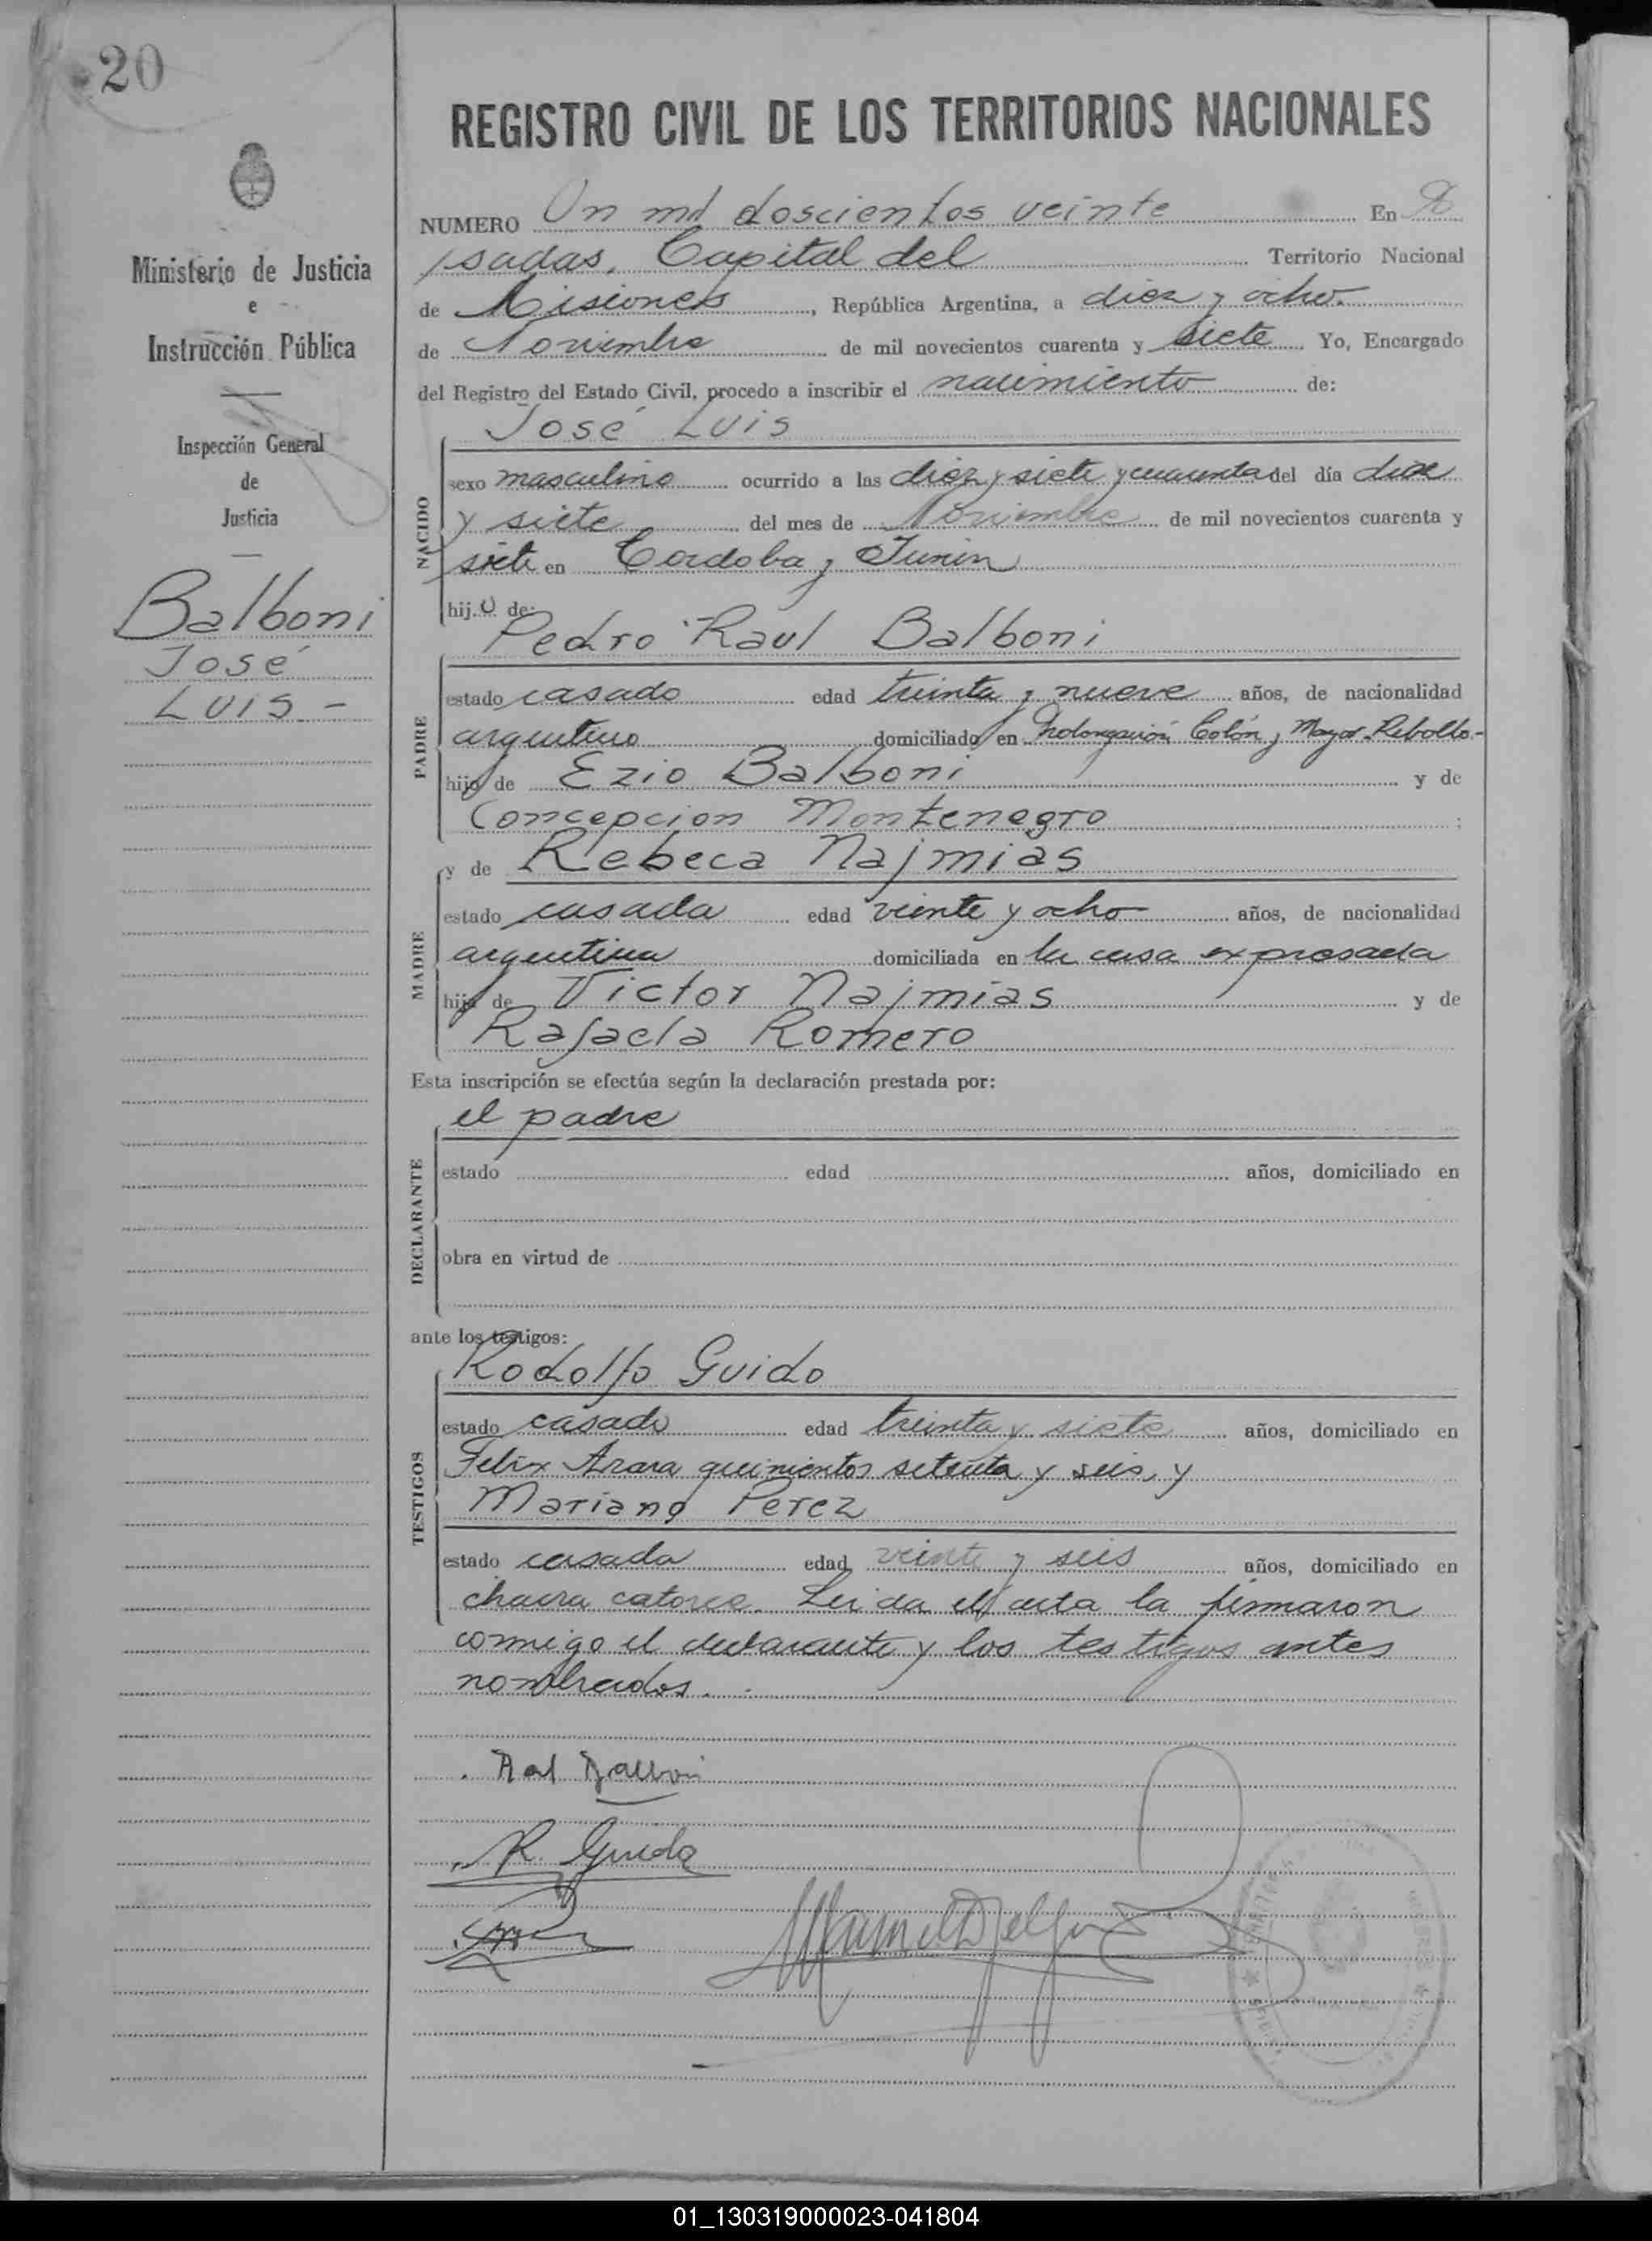 20
Ministerio de Justicia
e
Instrucción Pública
Inspección General
de
Justicia
Balboni
José
Luis -
REGISTRO CIVIL DE LOS TERRITORIOS NACIONALES
NUMERO Un mil doscientos veinte En Po
sadas, Capital del Territorio Nacional
de Misiones, República Argentina, a diez y ocho
de Noviembre de mil novecientos cuarenta y siete Yo, Encargado
del Registro del Estado Civil, procedo a inscribir el nacimiento de:
José Luis
NACIDO
sexo masculino ocurrido a las diez y siete y cuarenta del día diez
y siete del mes de Noviembre de mil novecientos cuarenta y
siete en Cordoba y Junin
hijo de:
Pedro Raul Balboni
PADRE
estado casado edad treinta y nueve años, de nacionalidad
argentino domiciliado en Prolongación Colón y Mayor Rebollo.-
hijo de Ezio Balboni y de
Concepcion Montenegro ;
y de Rebeca Najmias
MADRE
estado casada edad veinte y ocho años, de nacionalidad
argentina domiciliada en la casa expresada
hija de Victor Najmias y de
Rafaela Romero
Esta inscripción se efectúa según la declaración prestada por:
el padre
DECLARANTE
estado edad años, domiciliado en
obra en virtud de
ante los testigos:
Rodolfo Guido
TESTIGOS
estado casado edad treinta y siete años, domiciliado en
Felix Azara quinientos setenta y seis, y
Mariano Perez
estado casado edad veinte y seis años, domiciliado en
chacra catorce. Leida el acta la firmaron
conmigo el declarante y los testigos antes
nombrados.
R. Guido
01_130319000023-041804